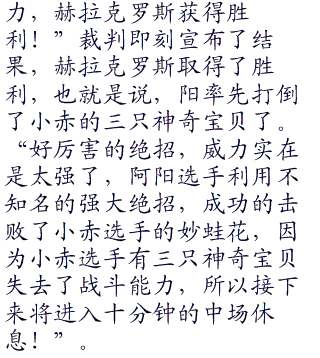 力，赫拉克罗斯获得胜
利！”裁判即刻宣布了结
果，赫拉克罗斯取得了胜
利，也就是说，阳率先打倒
了小赤的三只神奇宝贝了。
“好厉害的绝招，威力实在
是太强了，阿阳选手利用不
知名的强大绝招，成功的击
败了小赤选手的妙蛙花，因
为小赤选手有三只神奇宝贝
失去了战斗能力，所以接下
来将进入十分钟的中场休
息！”。